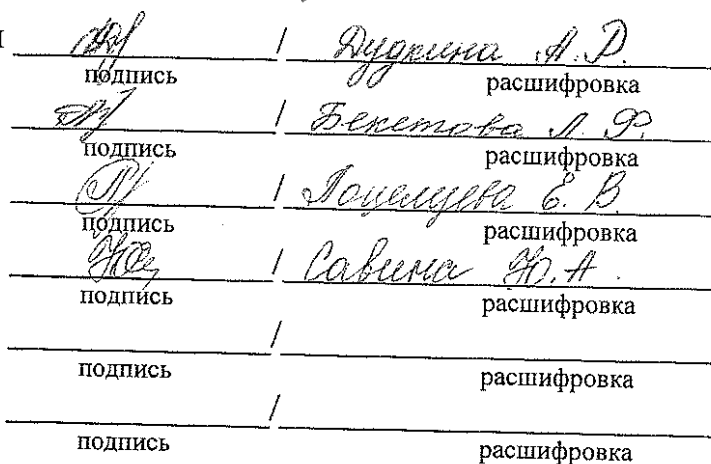 / Дудкина А. Р.
подпись расшифровка
/ Бекетова Л. Р.
подпись расшифровка
/ Поцелуева Е. В.
подпись расшифровка
/ Савина Ю. А.
подпись расшифровка
/
подпись расшифровка
/
подпись расшифровка